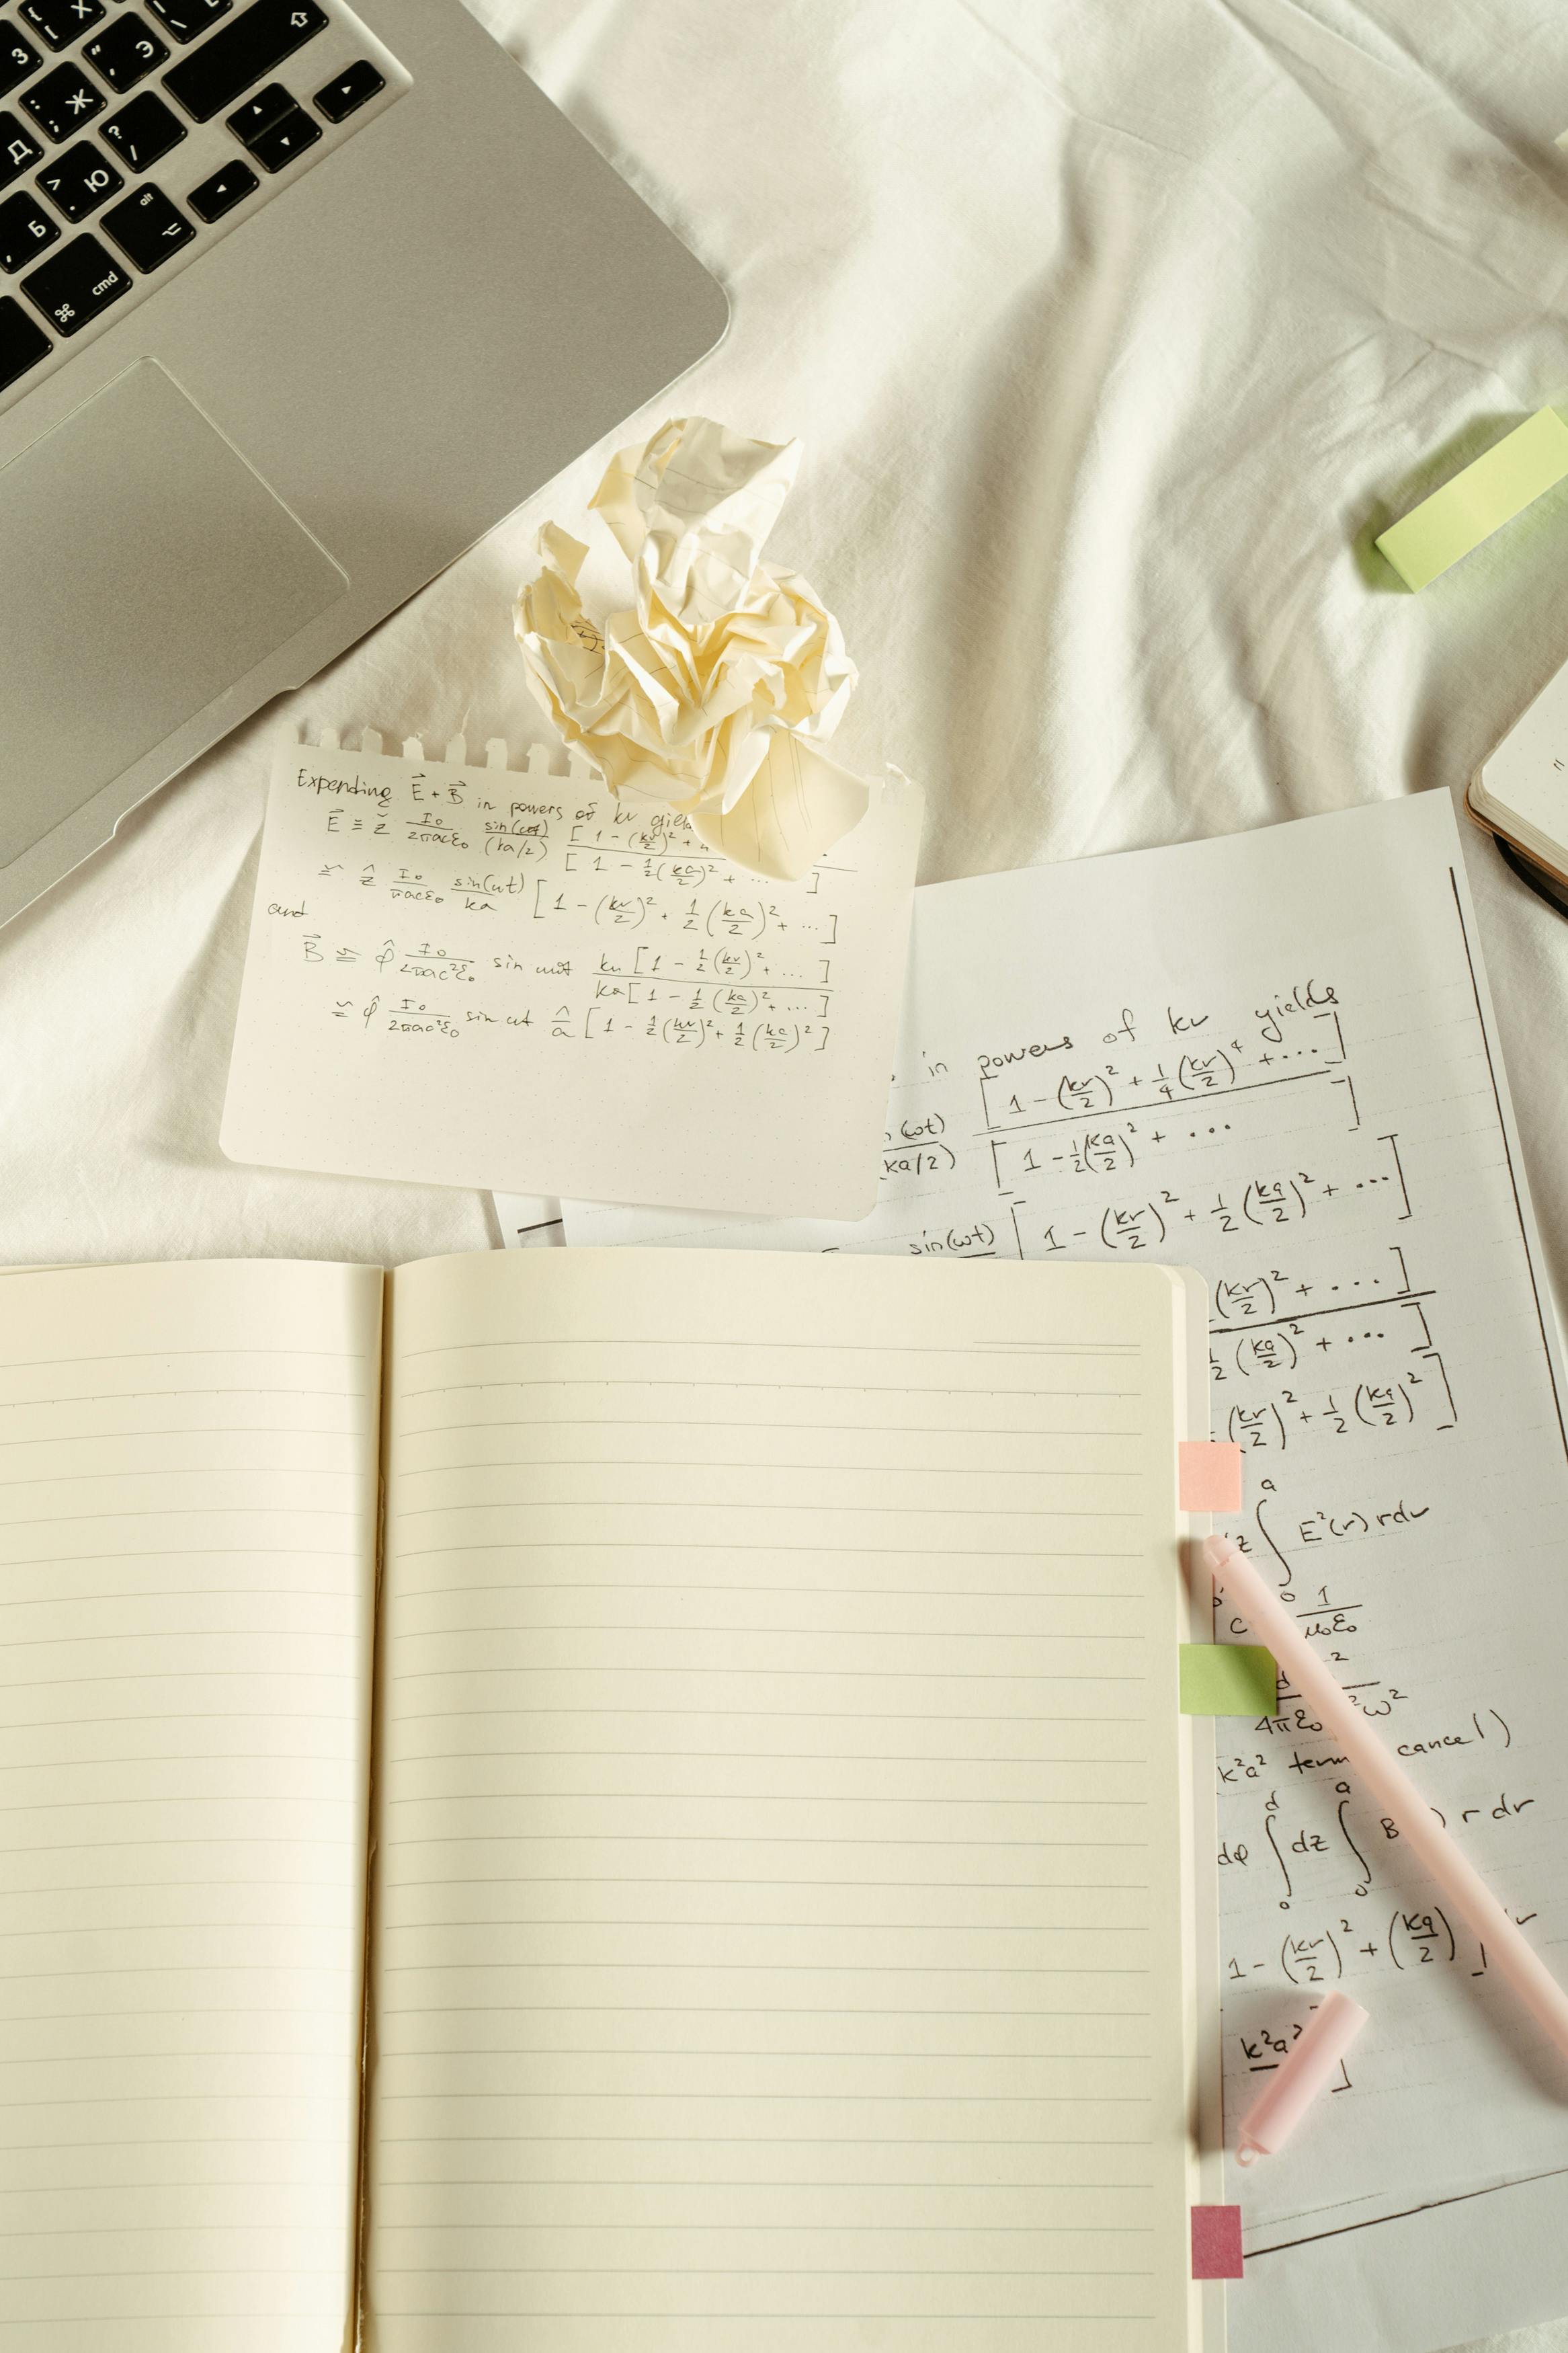 { [ Х
З
" ' Э
: ; Ж
? /
Д
> . Ю
alt
, Б
⌘ cmd
Expending E⃗ + B⃗ in powers of kr
E⃗ ≡ ẑ I₀/2πacε₀ sin(ωt)/(ka/2) [1 - (kr/2)² +
[1 - ½(ka/2)² + ... ]
≃ ẑ I₀/πacε₀ sin(ωt)/ka [1 - (kr/2)² + ½(ka/2)² + ... ]
and
B⃗ ≅ φ̂ I₀/2πac²ε₀ sin kr[1 - ½(kr/2)² + ... ]
ka[1 - ½(ka/2)² + ... ]
≃ φ̂ I₀/2πac²ε₀ sin ωt [1 - ½(kr/2)² + ½(ka/2)²]
in powers of kr yields
[1 - (kr/2)² + ¼(kr/2)⁴ + ... ]
(ωt)
(ka/2) [1 - ½(ka/2)² + ... ]
sin(ωt) [1 - (kr/2)² + ½(ka/2)² + ... ]
(kr/2)² + ... ]
½(ka/2)² + ... ]
(kr/2)² + ½(ka/2)²]
z ∫₀ᵃ E²(r) r dr
c 1/μ₀ε₀
d 2
4πε₀ ²ω²
k²a² term cancel)
dφ ∫₀ᵈ dz ∫₀ᵃ B ) r dr
1 - (kr/2)² + (ka/2) ]
k²a² ]